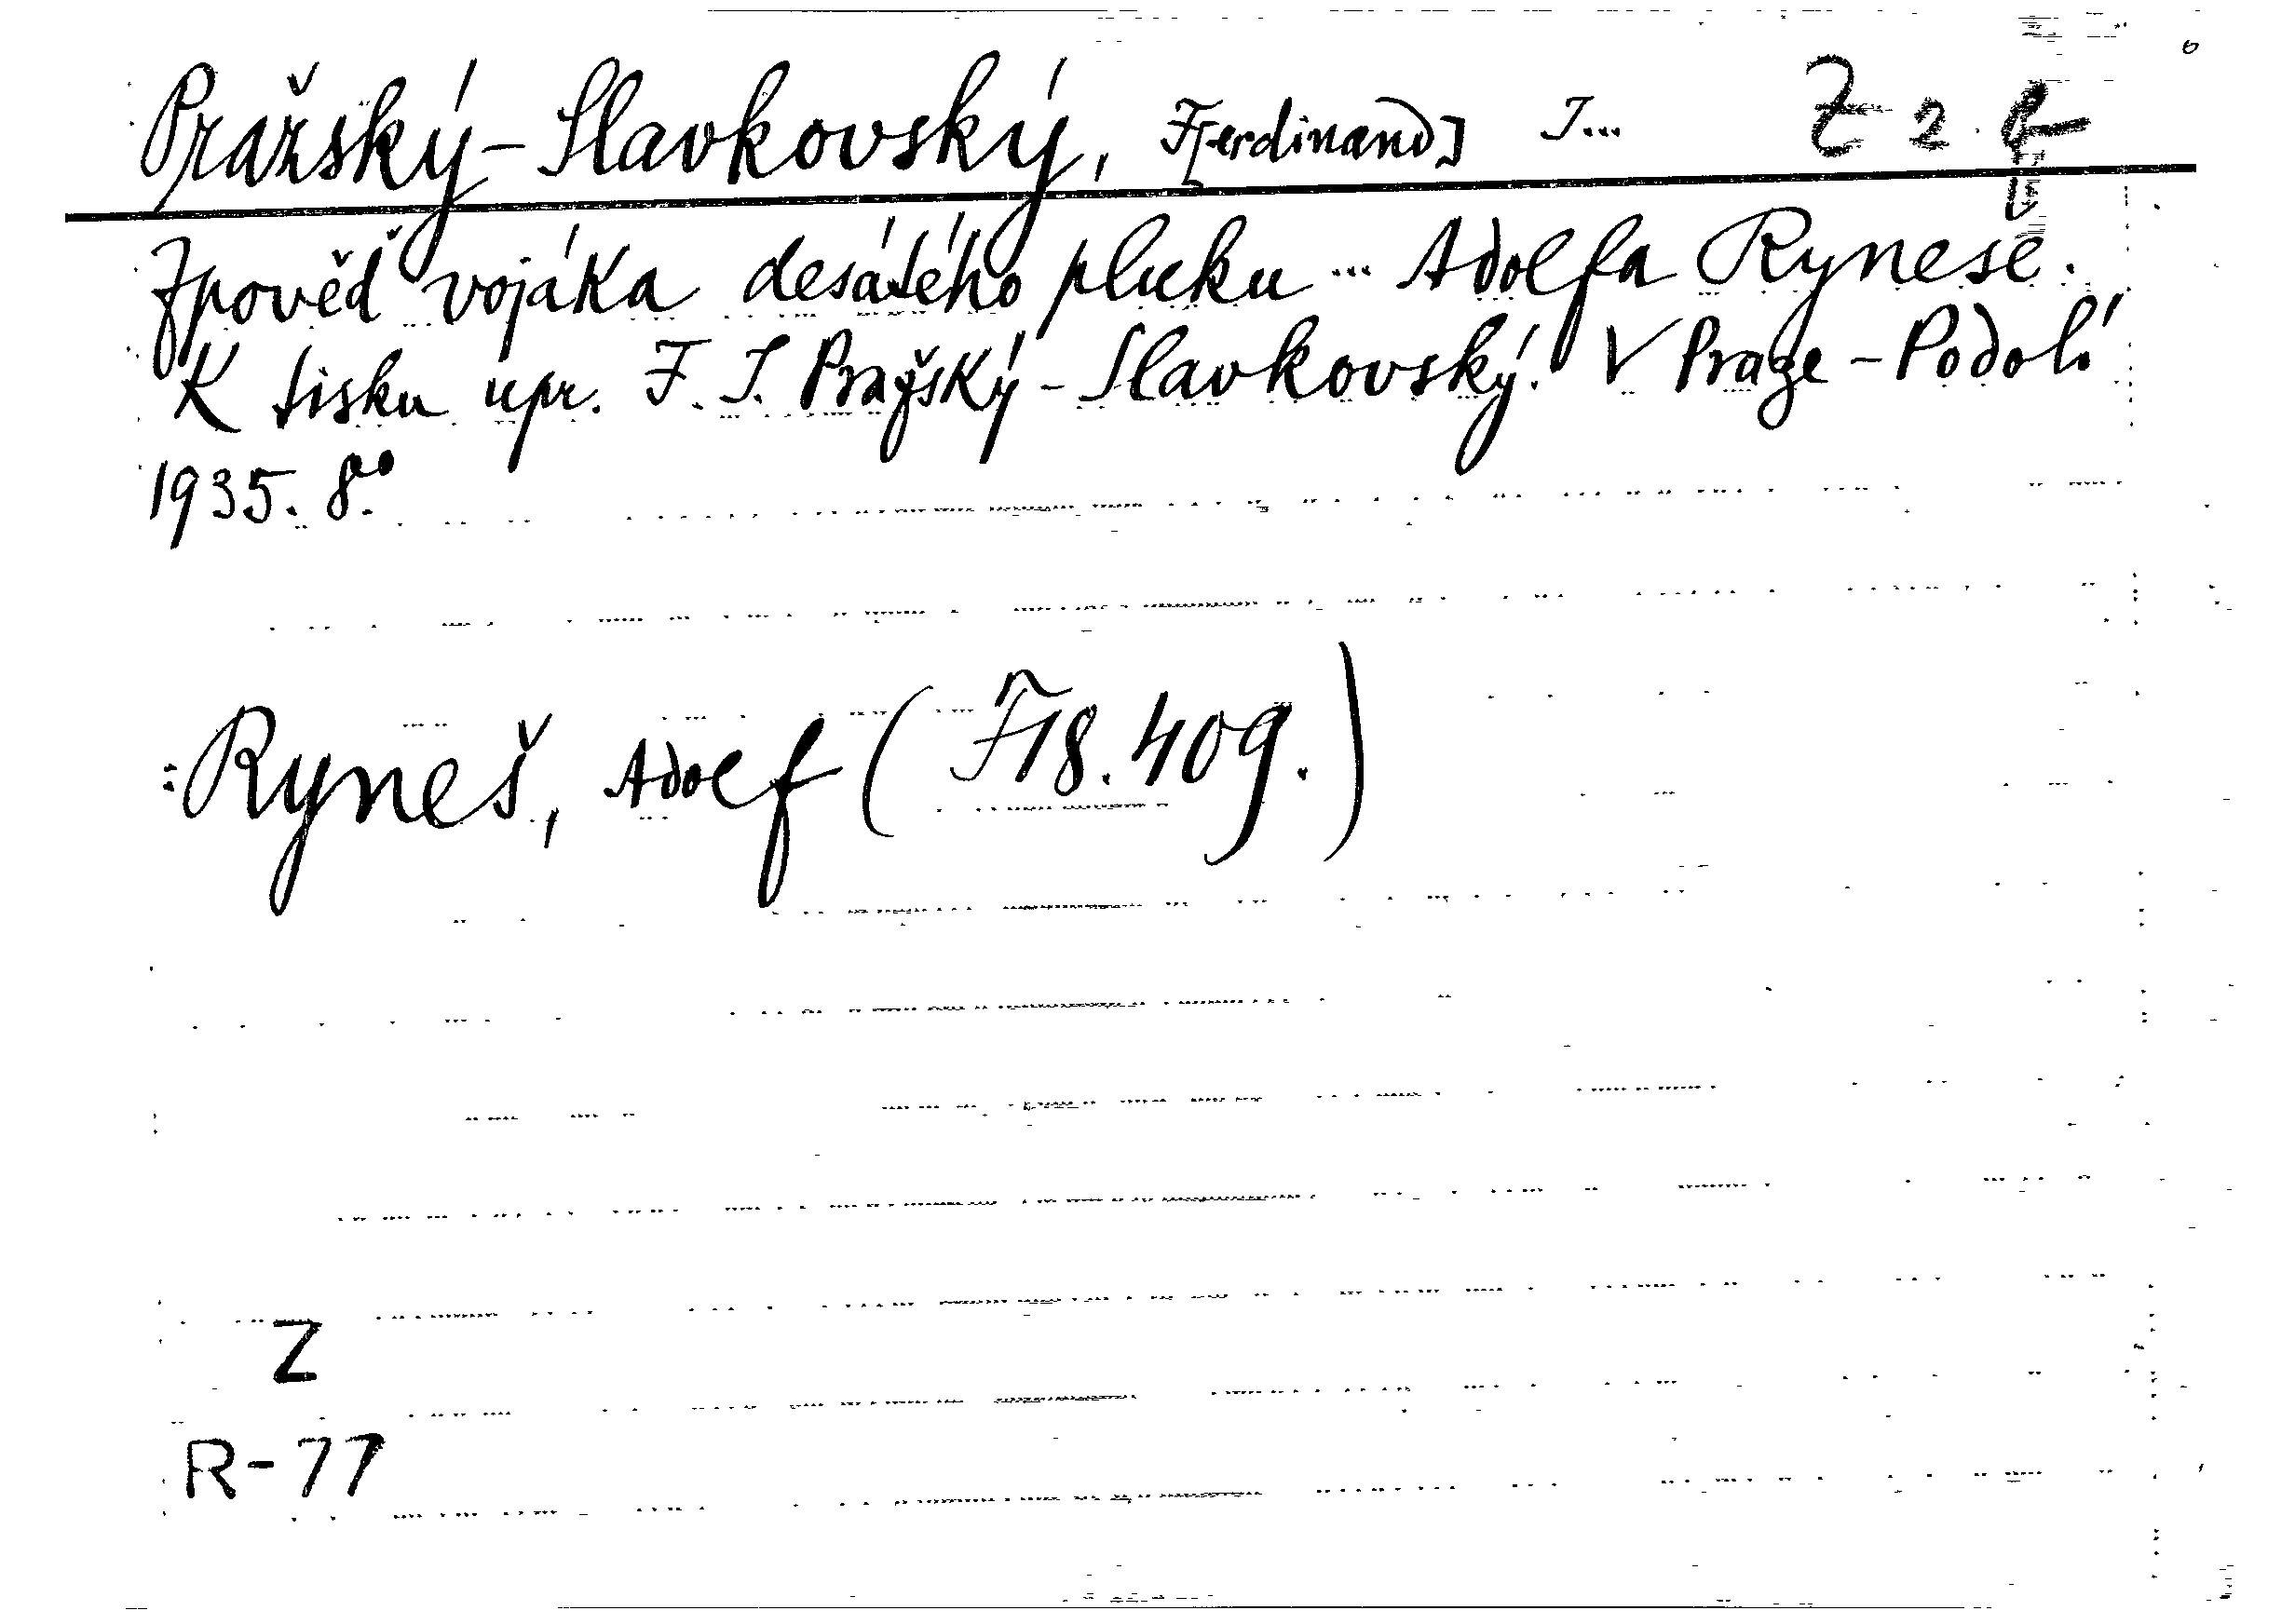 Pražský-Slavkovský, F[erdinand] J... Z 2.
Zpověď vojáka desátého pluku ... Adolfa Rynese.
K tisku upr. F. J. Pražský-Slavkovský. V Praze-Podolí
1935. 8°.
:Ryneš, Adolf (F18.409.)
Z
R-77